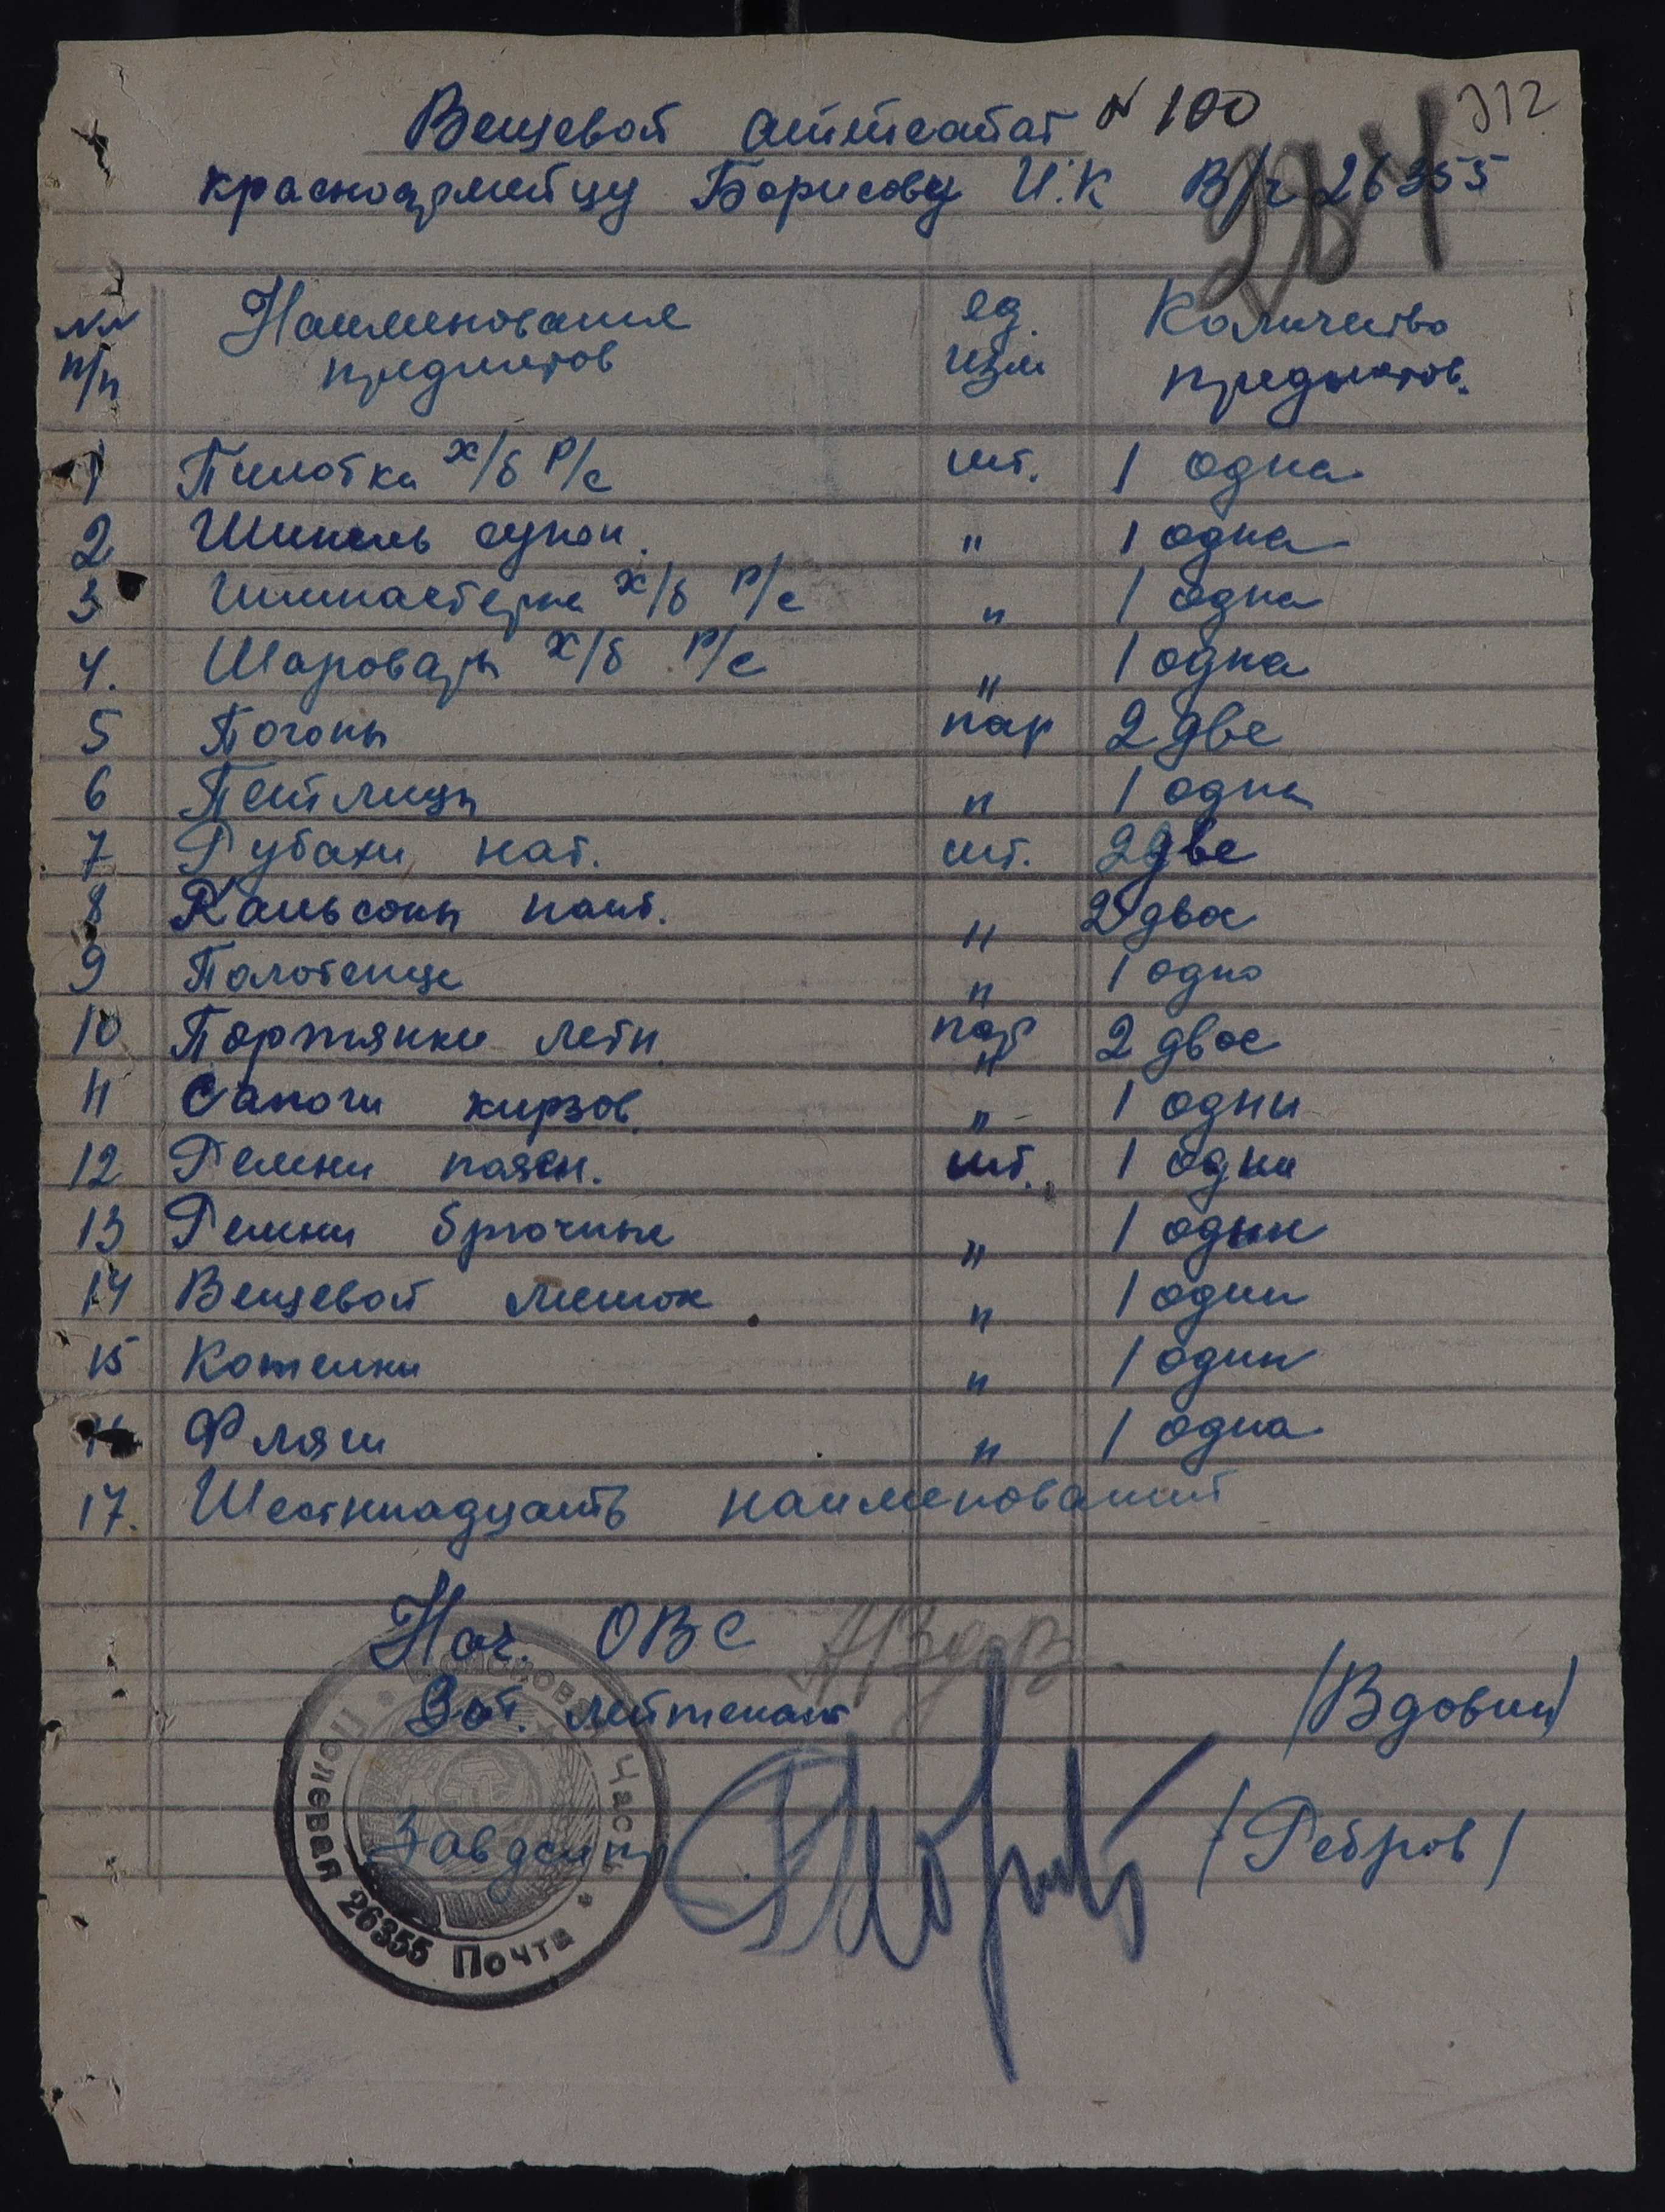 Вещевой аттестат № 100
312
284
красноармейцу Борисову И.К В/ч 26355
№№ п/п Наименование предметов ед. изм Количество предметов.
1 Пилотка х/б Р/с шт. 1 одна
2 Шинель сукон. " 1 одна
3 Гимнастерка х/б Р/с " 1 одна
4. Шаровары х/б Р/с " 1 одна
5 Погоны пар 2 две
6 Петлицы " 1 одна
7 Рубахи нат. шт. 2 две
8 Кальсоны нат. " 2 двое
9 Полотенце " 1 одно
10 Портянки летн. пар " 2 двое
11 Сапоги кирзов. " 1 одни
12 Ремни поясн. шт. 1 один
13 Ремни брючные " 1 один
14 Вещевой мешок " 1 один
15 Котелки " 1 один
16 Фляги " 1 одна
17. Шестннадцать наименований
Нач. ОВС
лейтенант /Вдовин/
Завделпр /Ребров/
Полевая Почта 26355 Часть